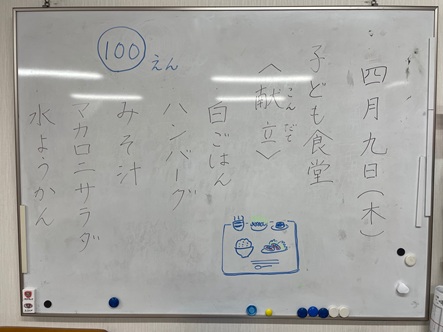 四月九日(木)
子ども食堂
〈献立〉
こんだて
白ごはん
ハンバーグ
みそ汁
マカロニサラダ
水ようかん
100えん